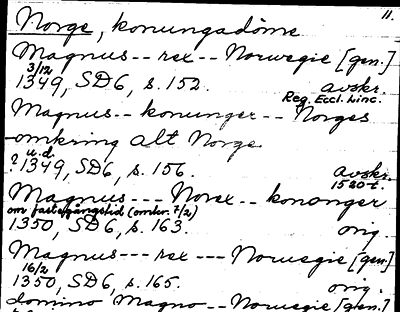 11.
Norge, konungadöme
Magnus -- rex -- Norwegie [gen.]
3/12
1349, SD6, s. 152. avskr.
Reg. Eccl. Linc.
Magnus -- konunger -- Norges
omkring alt Norge.
u.d.
? 1349, SD6, s. 156. avskr.
1580-t.
Magnus --- Norex -- kononger
om fastegångstid (omkr. 7/2)
1350, SD6, s. 163. orig.
Magnus --- rex --- Norwegie [gen]
16/2
1350, SD6, s. 165. orig.
domino Magno -- Norwegie [gen.]